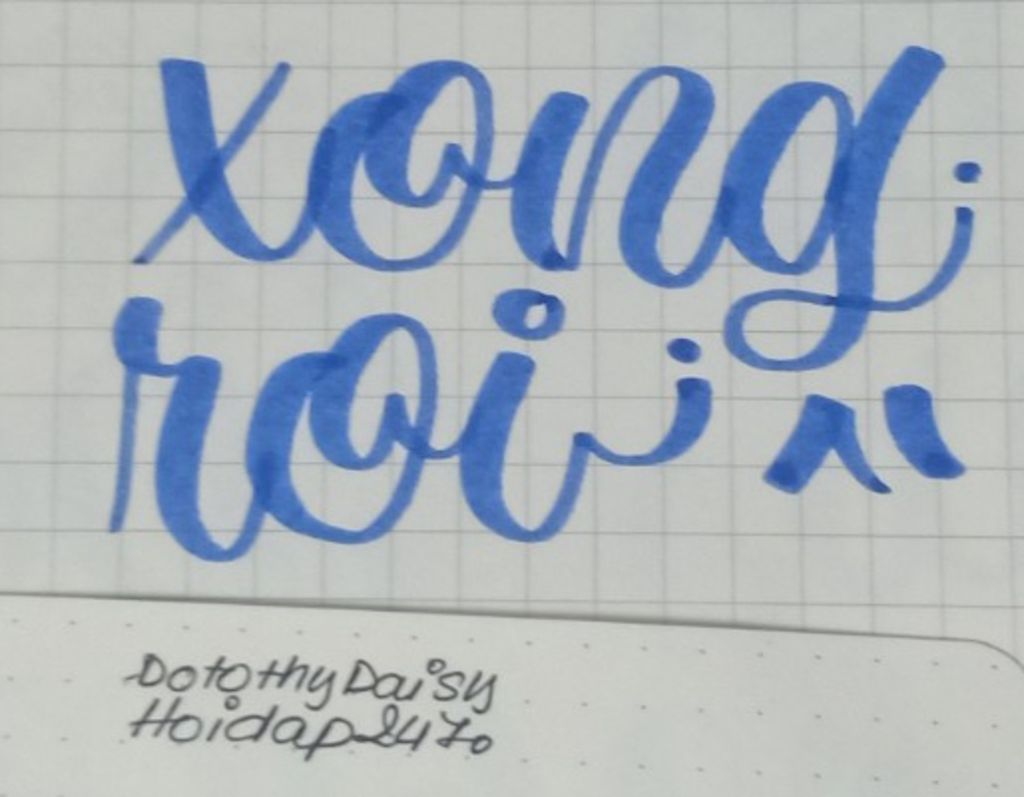 xong
roi ^^
DotothyDaisy
Hoidap247.